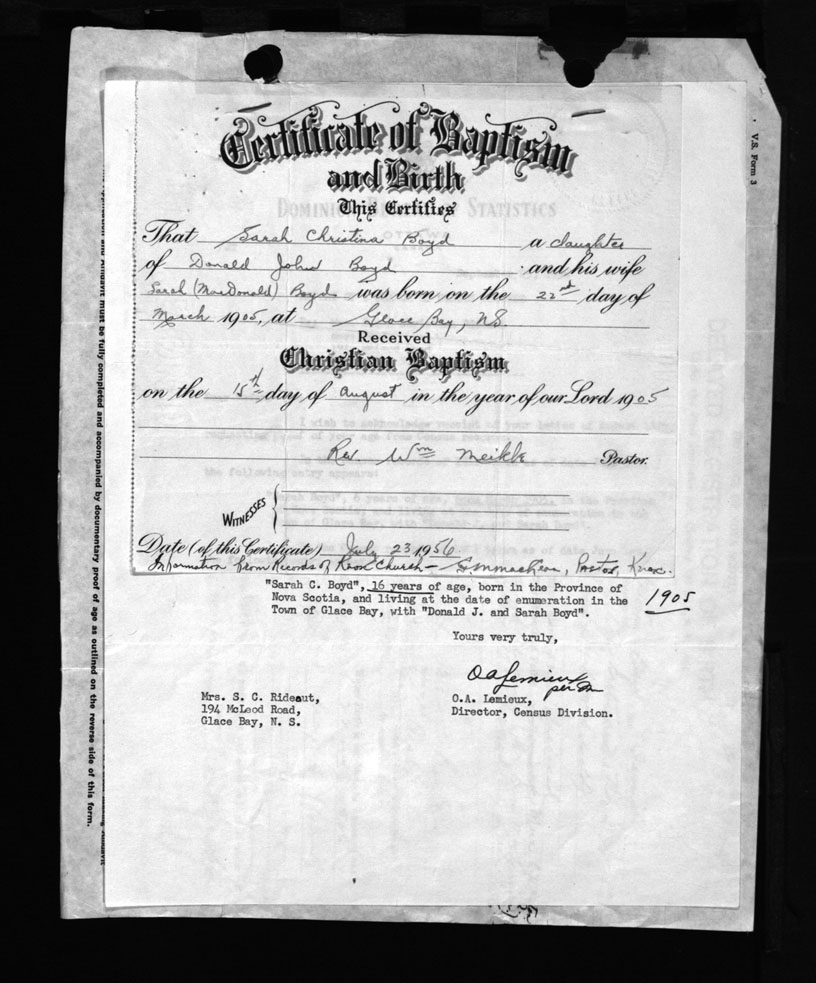 Certificate of Baptism
and Birth
This Certifies
DOMINION STATISTICS
That Sarah Christina Boyd a daughter
of Donald John Boyd and his wife
Sarah (MacDonald) Boyd was born on the 22nd day of
March 1905, at Glace Bay, N.S.
Received
Christian Baptism
on the 15th day of August in the year of our Lord 1905
Rev Wm Meikle Pastor.
WITNESSES
Date (of this Certificate) July 23, 1956
Information from Records of Knox Church - Pastor, Knox.
"Sarah C. Boyd", 16 years of age, born in the Province of
Nova Scotia, and living at the date of enumeration in the
Town of Glace Bay, with "Donald J. and Sarah Boyd".
1905
Yours very truly,
O A Lemieux
per
O.A. Lemieux,
Director, Census Division.
Mrs. S. C. Rideout,
194 McLeod Road,
Glace Bay, N. S.
V.S. Form 3
Affidavit must be fully completed and accompanied by documentary proof of age as outlined on the reverse side of this form.